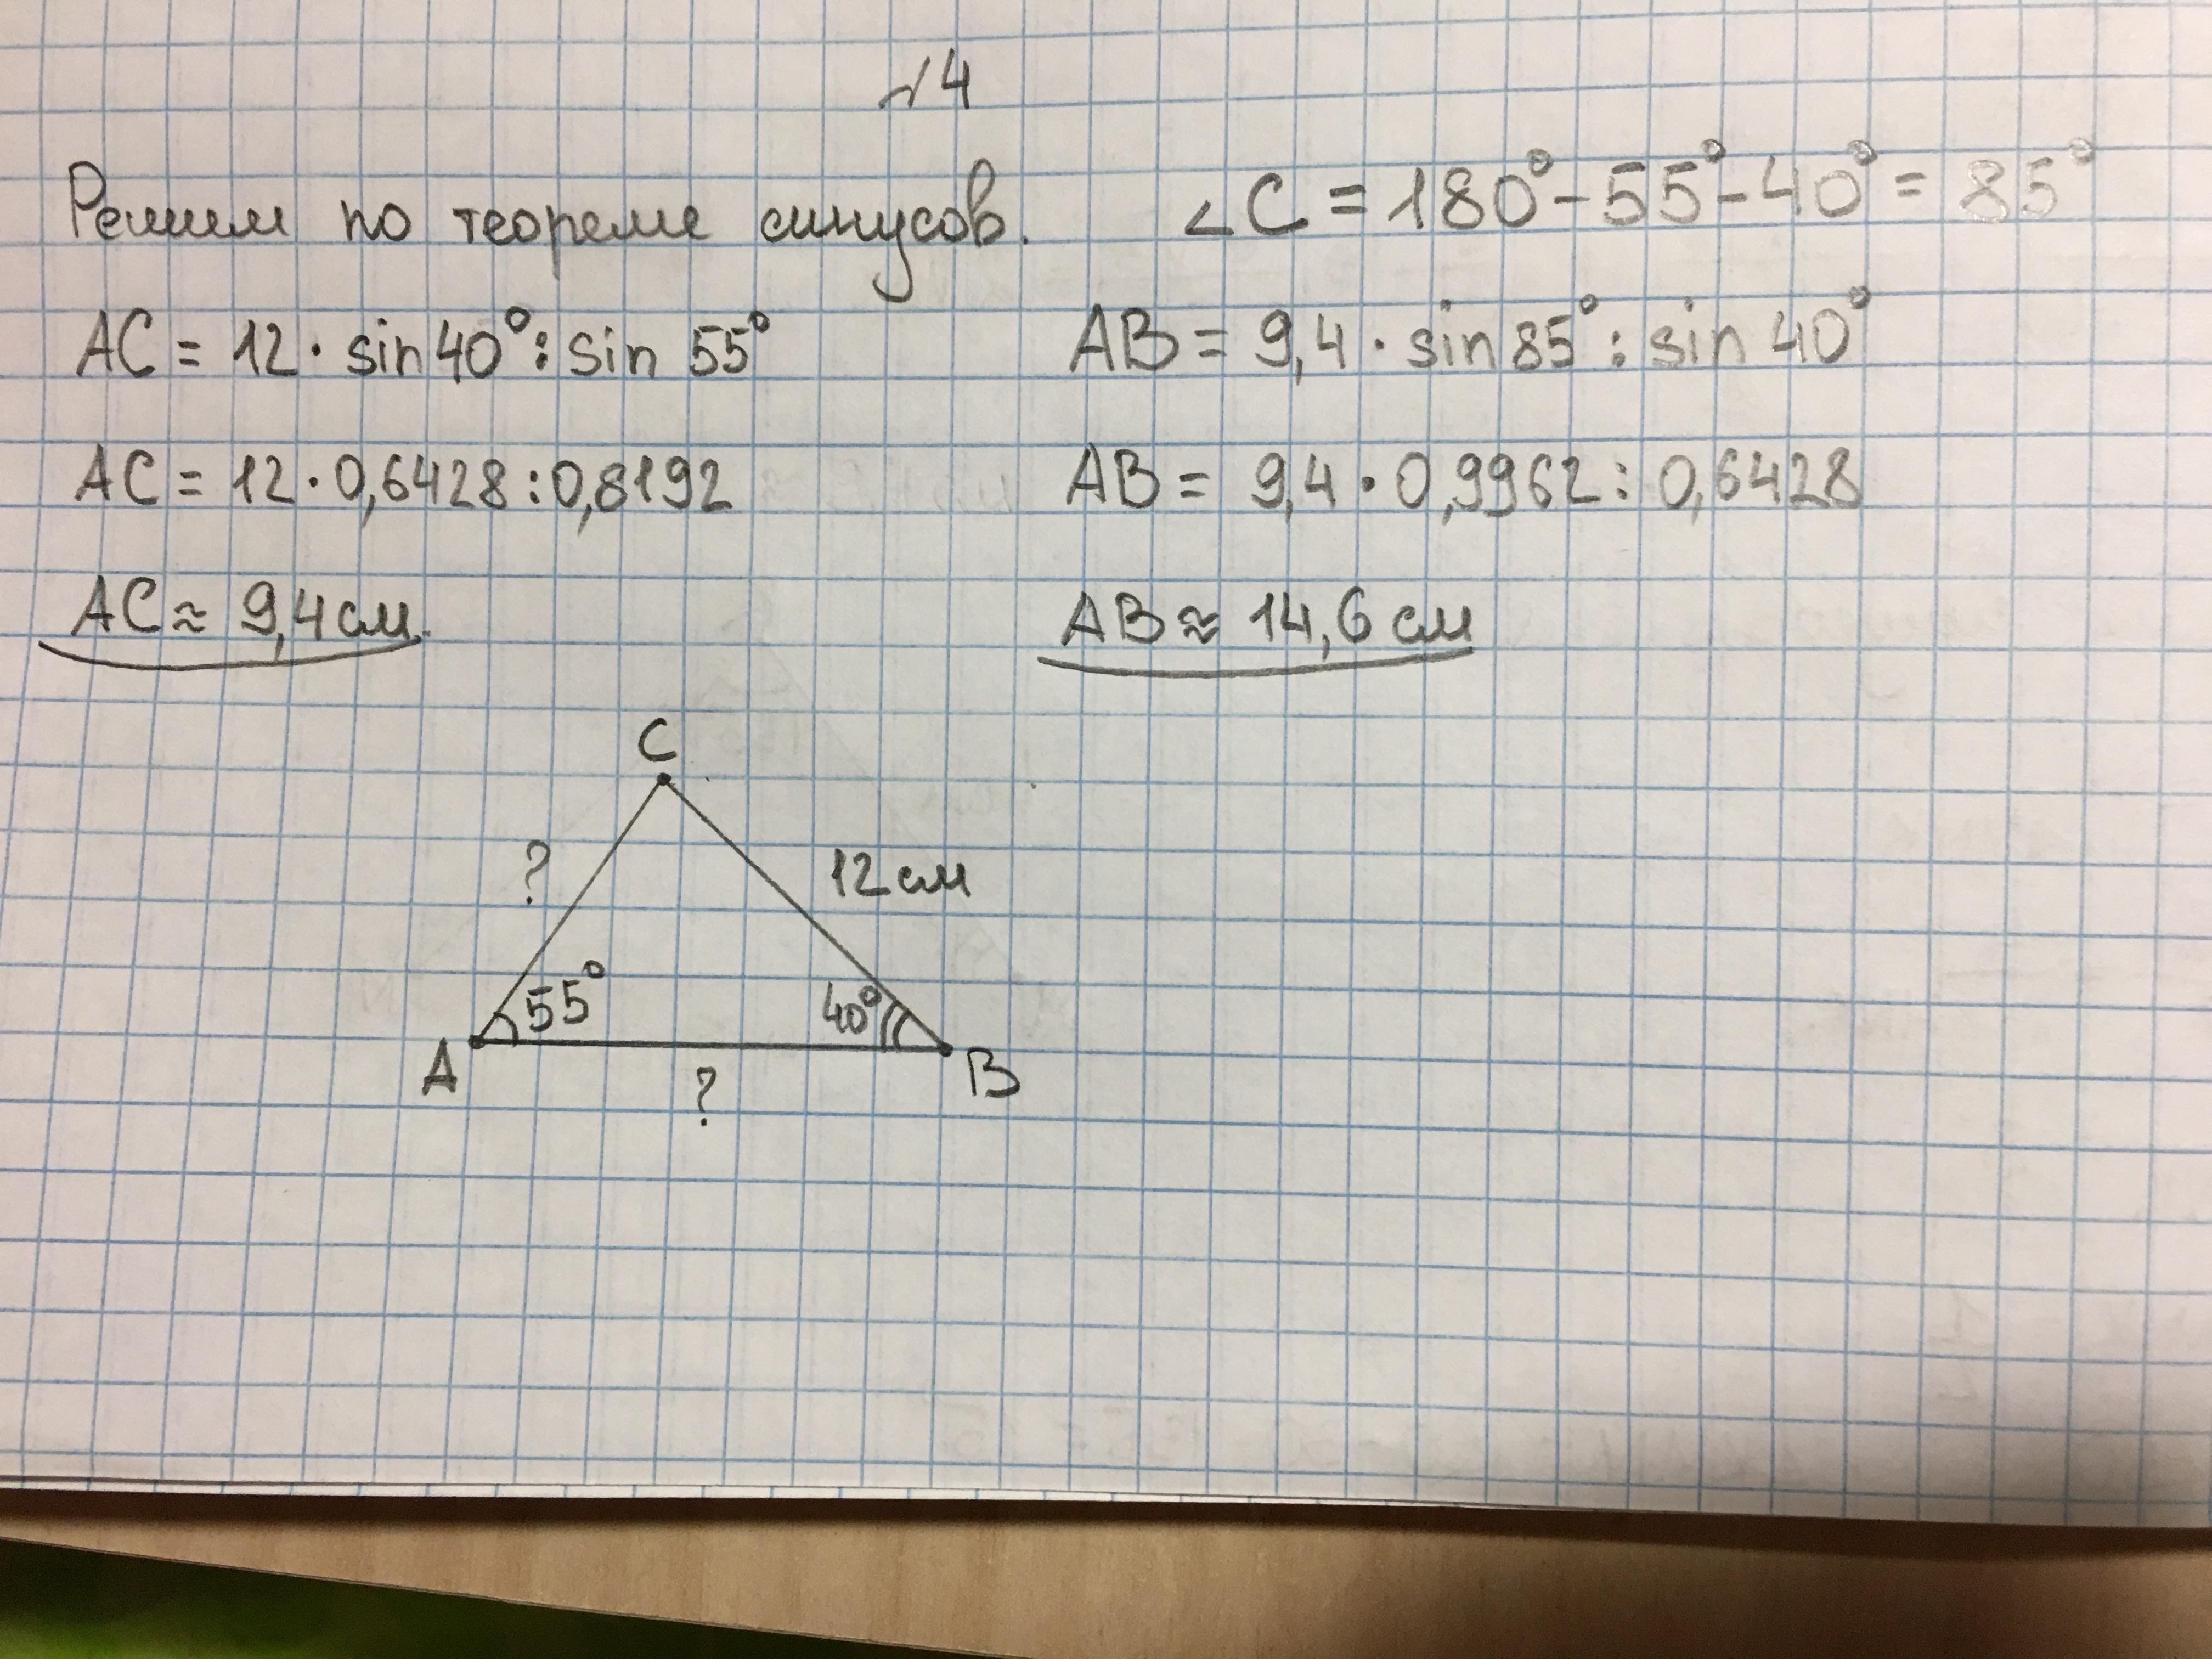 √4
Решим по теореме синусов.
AC = 12 · sin 40° : sin 55°
AC = 12 · 0,6428 : 0,8192
AC ≈ 9,4 см.
∠C = 180° - 55° - 40° = 85°
AB = 9,4 · sin 85° : sin 40°
AB = 9,4 · 0,9962 : 0,6428
AB ≈ 14,6 см
C
?
12 см
55°
40°
A
B
?